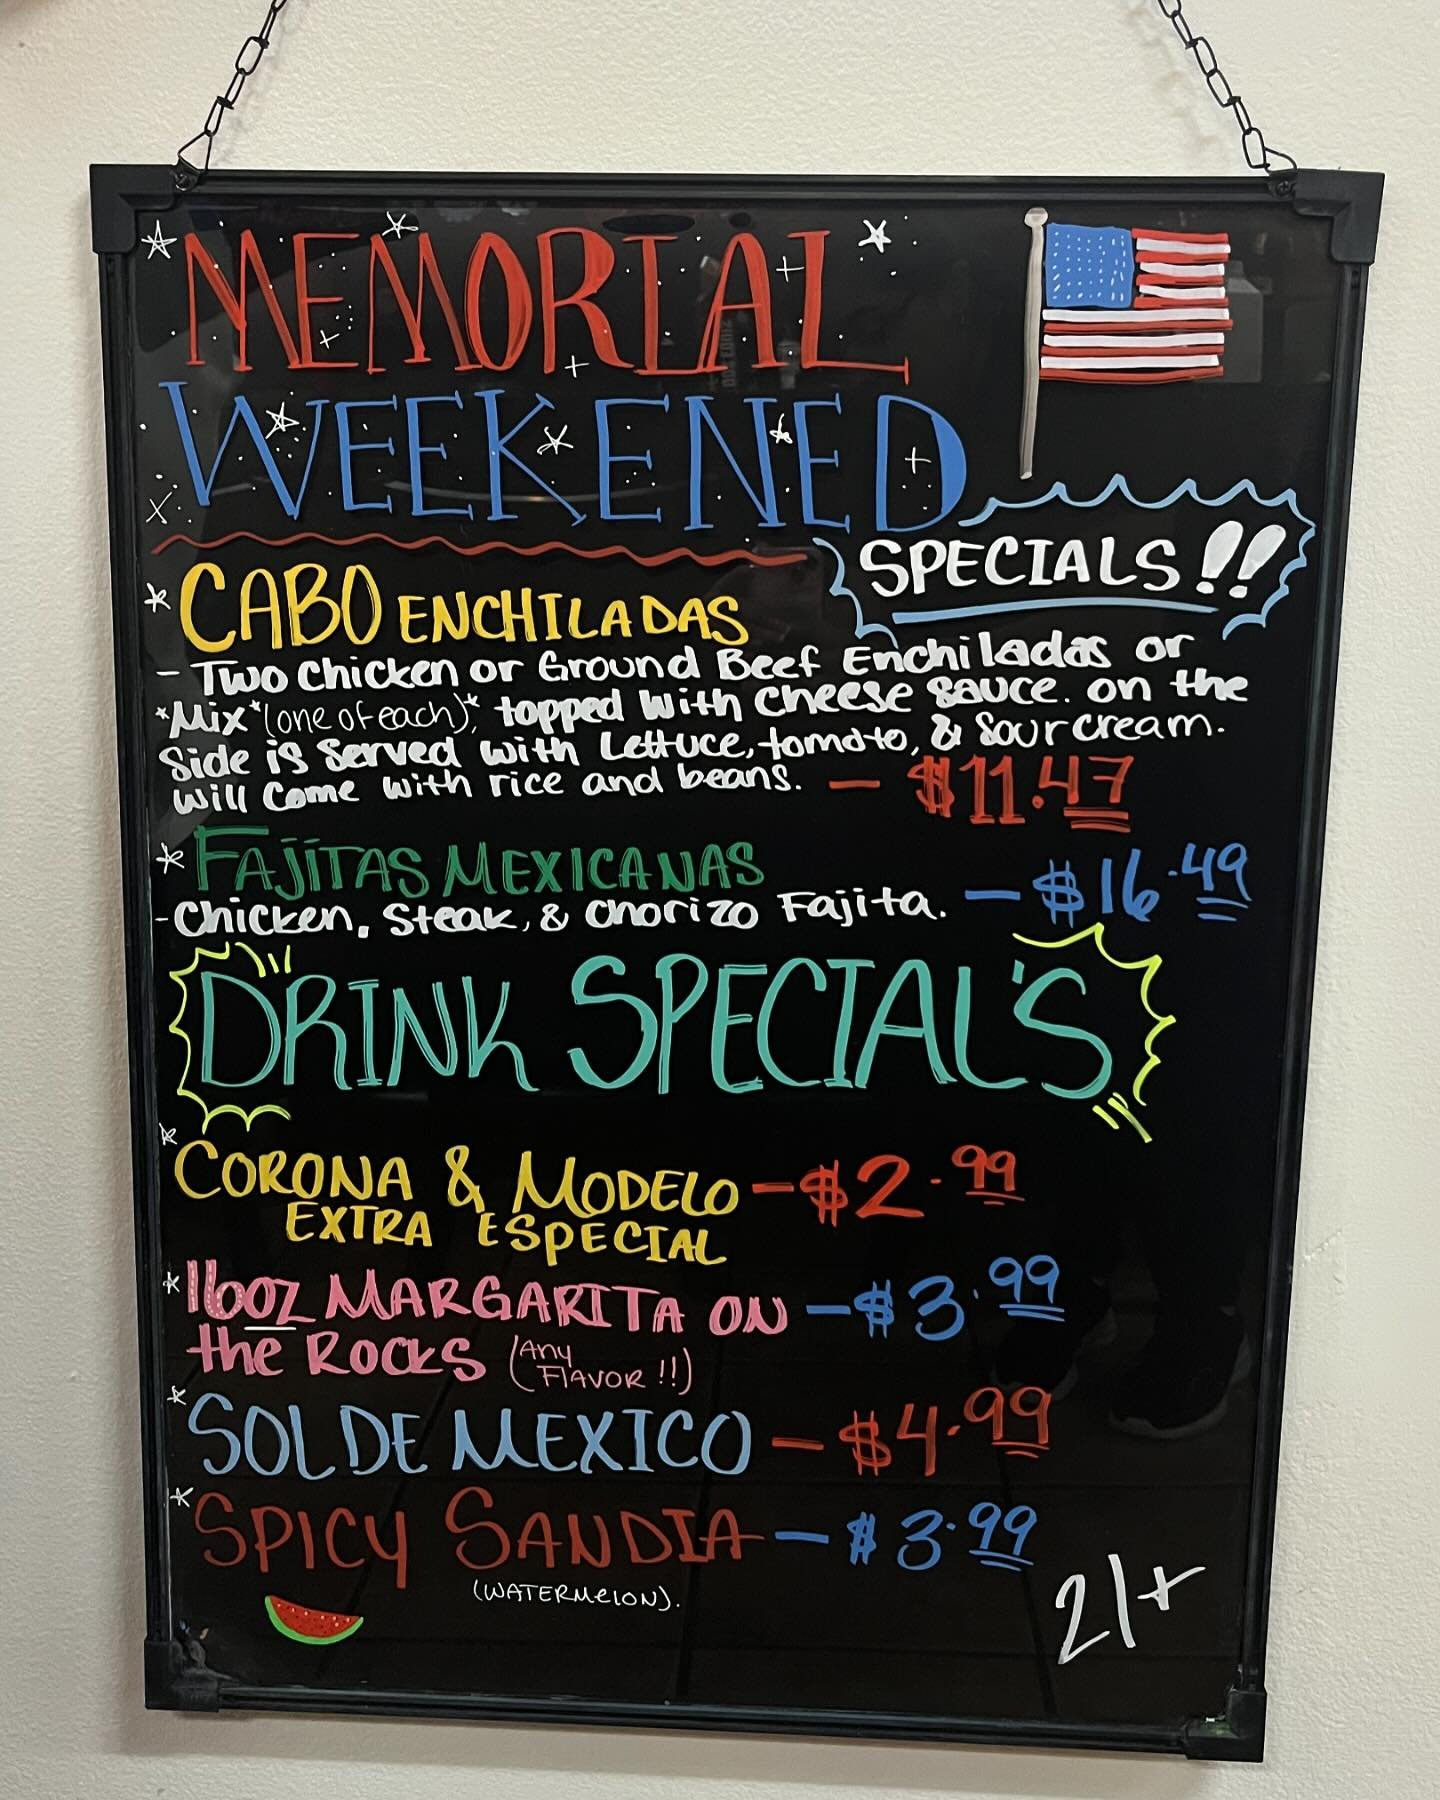 MEMORIAL
WEEKENED
SPECIALS!!
* CABO ENCHILADAS
- Two Chicken or Ground Beef Enchiladas or
*Mix* (one of each)* topped with cheese sauce. on the
Side is Served with Lettuce, tomato, & Sour cream.
will Come with rice and beans. — $11.47
* FAJITAS MEXICANAS
- Chicken, Steak, & Chorizo Fajita. — $16.49
DRINK SPECIAL'S
* CORONA & MODELO — $2.99
EXTRA ESPECIAL
* 16oz MARGARITA ON — $3.99
the ROCKS (Any
FLAVOR !!)
* SOL DE MEXICO — $4.99
* SPICY SANDIA — $3.99
(WATERMELON).
21+